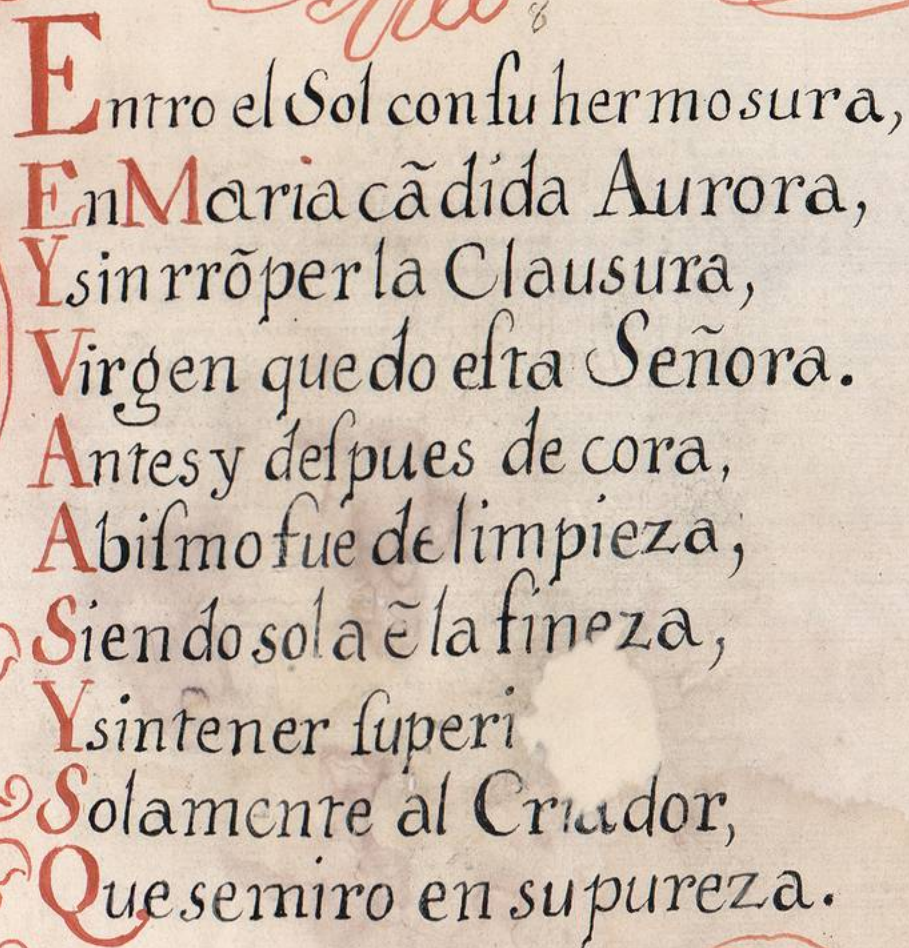 8
Entro el Sol con ſu hermosura,
En Maria cãdida Aurora,
Y sin rrõper la Clausura,
Virgen quedo eſta Señora.
Antes y deſpues de cora,
Abiſmo fue de limpieza,
Siendo sola ẽ la fineza,
Y sin tener
Solamente al Criador,
Que se miro en su pureza.